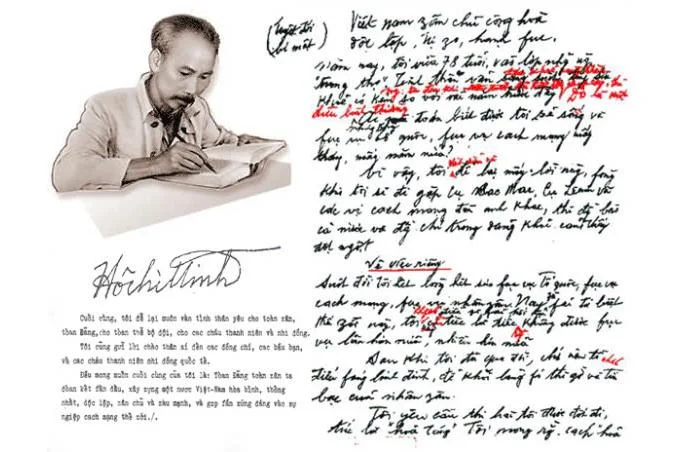 (Tuyệt đối
bí mật)
Việt nam zân chủ cộng hoà
độc lập, tự zo, hạnh fúc.
Năm nay, tôi vừa 78 tuổi, vào lớp những
"trung thọ". Tinh thần vẫn
khoẻ, có kém so với vài năm trước đây,
điều bình thường
toán biết được tôi
fục vụ Tổ quốc, fục vụ cách mạng mấy
tháng, mấy năm nữa?
Vì vậy, tôi để lại mấy lời này, fòng
khi tôi sẽ đi gặp cụ Các Mác, Cụ Lênin và
các vị cách mạng đàn anh khác, thì đồng bào
cả nước và đồng chí trong đảng khỏi cảm thấy
đột ngột
Về việc riêng
Suốt đời tôi hết lòng hết sức fục vụ tổ quốc, fục vụ
cách mạng, fục vụ nhân zân. Nay zù fải từ biệt
thế zới này, tôi không có điều gì fải hối hận
chỉ tiếc là tiếc không được fục
vụ lâu hơn nữa, nhiều hơn nữa
Sau khi tôi đã qua đời, chớ nên tổ chức
điếu fúng linh đình, để khỏi lãng fí thì giờ và tiền
bạc của nhân zân.
Tôi yêu cầu thi hài tôi được đốt đi,
tức là "hoả táng" Tôi mong rằng cách "hoả
HồchíMinh
Cuối cùng, tôi để lại muôn vàn tình thân yêu cho toàn zân,
toàn Đảng, cho toàn thể bộ đội, cho các cháu thanh niên và nhi đồng.
Tôi cũng gửi lời chào thân ái đến các đồng chí, các bầu bạn,
và các cháu thanh niên nhi đồng quốc tế.
Điều mong muốn cuối cùng của tôi là: Toàn Đảng toàn zân ta
đoàn kết fấn đấu, xây zựng một nước Việt-Nam hòa bình, thống
nhất, độc lập, zân chủ và zàu mạnh, và góp fần xứng đáng vào sự
nghiệp cách mạng thế zới./.